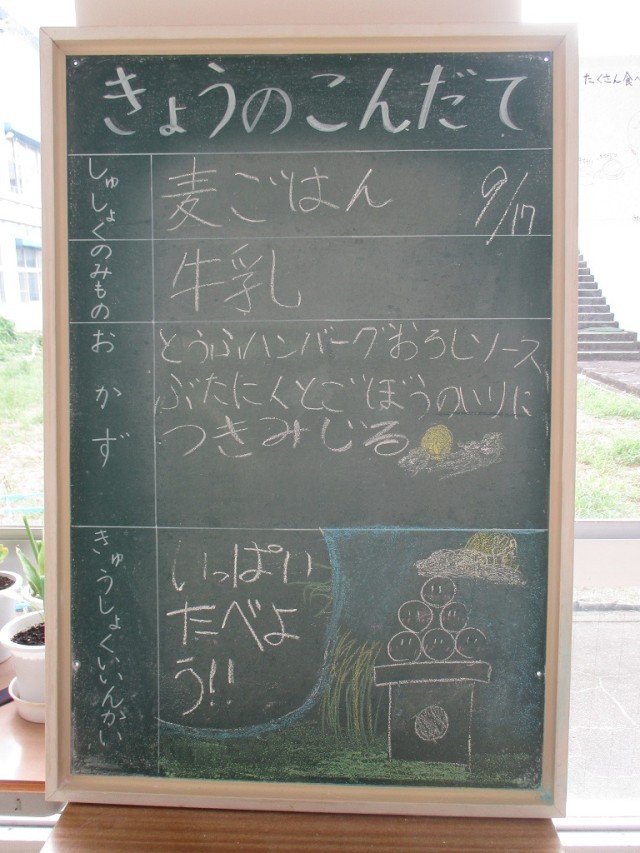 きょうのこんだて
しゅしょくのみもの
麦ごはん
9/17
牛乳
おかず
とうふハンバーグおろしソース
ぶたにくとごぼうのいりに
つきみじる
きゅうしょくいいんかい
いっぱい
たべよ
う!!
たくさん食べ